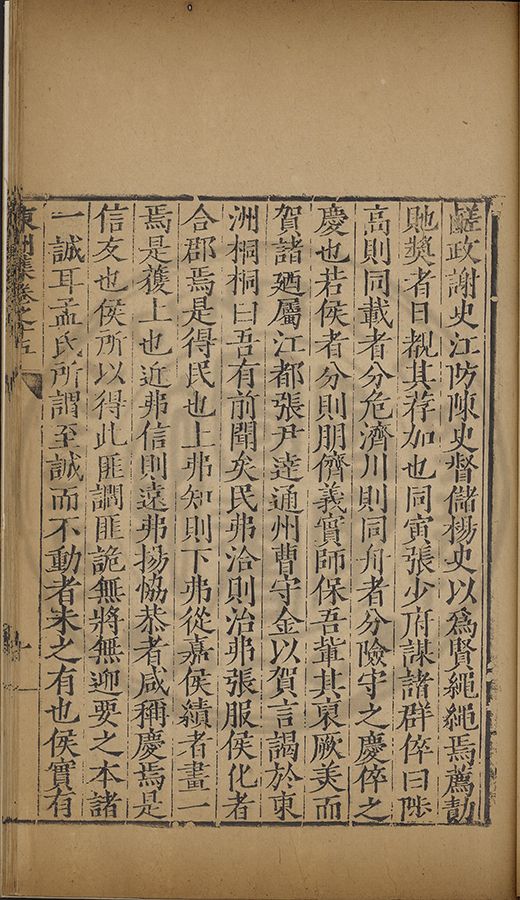 鹺政謝史江防陳史督儲楊史以爲賢繩繩焉薦
貤獎者日覩其荐加也同寅張少府謀諸群倅曰陟
高則同載者分危濟川則同舟者分險守之慶倅之
慶也若侯者分則朋儕義實師保吾輩其裒厥美而
賀諸廼屬江都張尹逹通州曹守金以賀言謁於東
洲桐桐曰吾有前聞矣民弗洽則治弗張服侯化者
合郡焉是得民也上弗知則下弗從嘉侯績者畫一
焉是獲上也近弗信則遠弗揚恊恭者咸稱慶焉是
信友也侯所以得此匪讕匪詭無將無迎要之本諸
一誠耳孟氏所謂至誠而不動者未之有也侯實有
東洲集卷之五